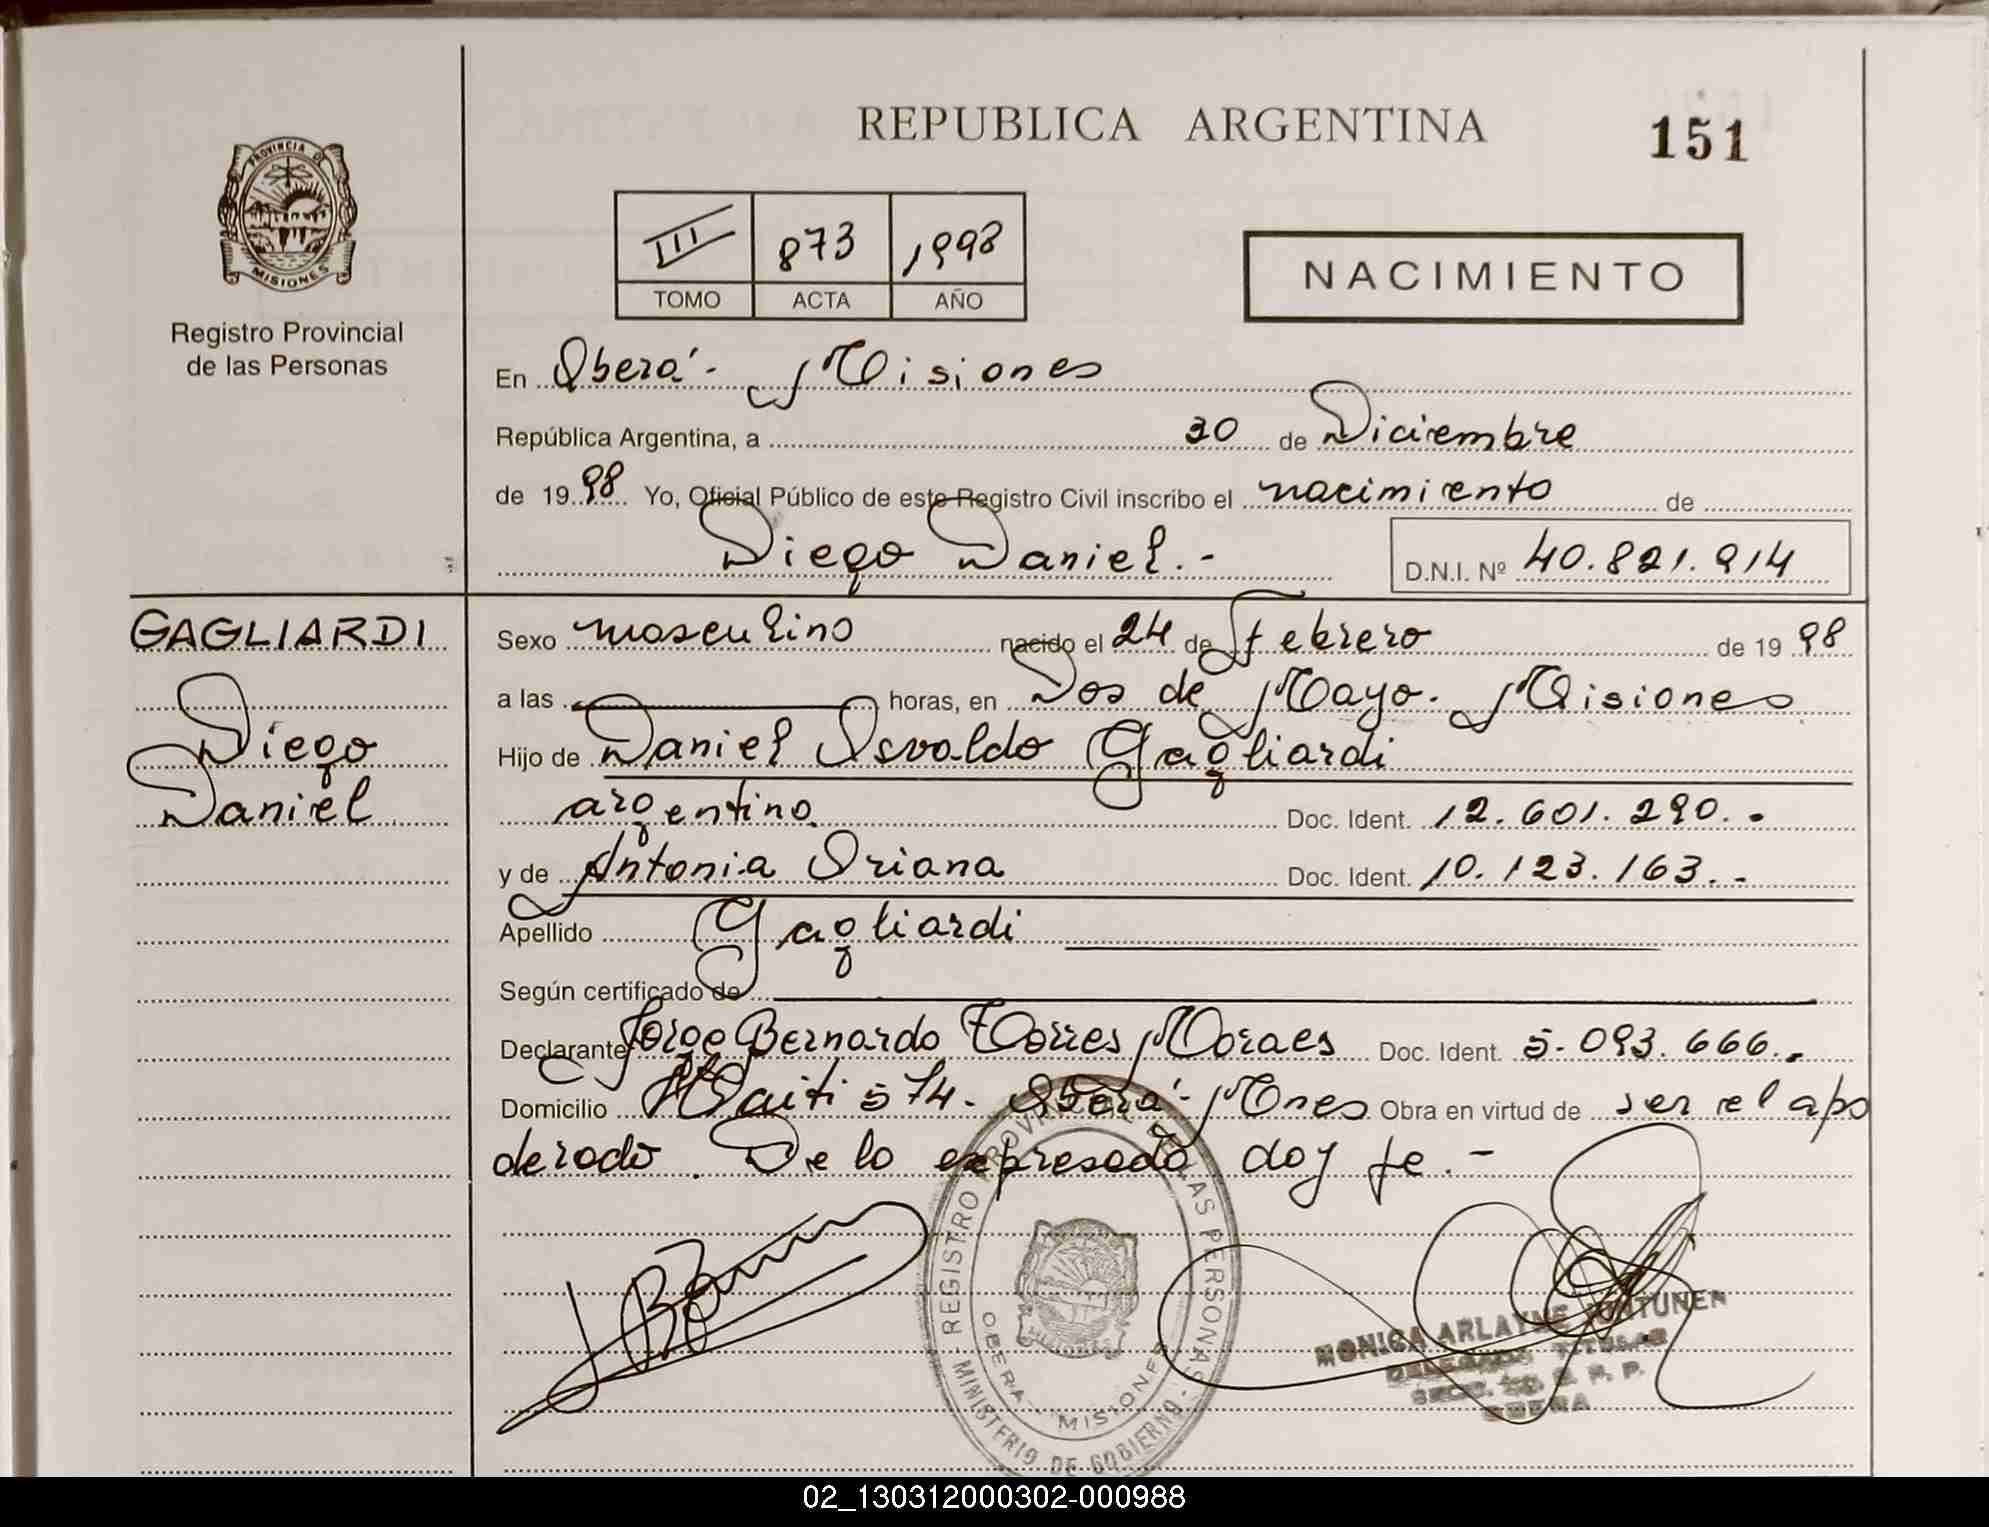 REPUBLICA ARGENTINA
151
PROVINCIA DE
MISIONES
Registro Provincial
de las Personas
III 873 1998
TOMO ACTA AÑO
NACIMIENTO
En Oberá - Misiones
República Argentina, a 30 de Diciembre
de 1998 Yo, Oficial Público de este Registro Civil inscribo el nacimiento de
Diego Daniel.- D.N.I. Nº 40.821.914
GAGLIARDI
Diego
Daniel
Sexo masculino nacido el 24 de Febrero de 1998
a las horas, en Dos de Mayo. Misiones
Hijo de Daniel Osvaldo Gagliardi
argentino Doc. Ident. 12.601.290.-
y de Antonia Oriana Doc. Ident. 10.123.163.-
Apellido Gagliardi
Según certificado de
Declarante Jorge Bernardo Torres Moraes Doc. Ident. 5.093.666.-
Domicilio Haiti 574. Oberá - Mnes Obra en virtud de ser el apo
derado. De lo expresado, doy fe.-
REGISTRO PROVINCIAL DE LAS PERSONAS - MINISTERIO DE GOBIERNO
OBERA - MISIONES
MONICA ARLAYNE
DELEGADA TITULAR
OBERA
02_130312000302-000988